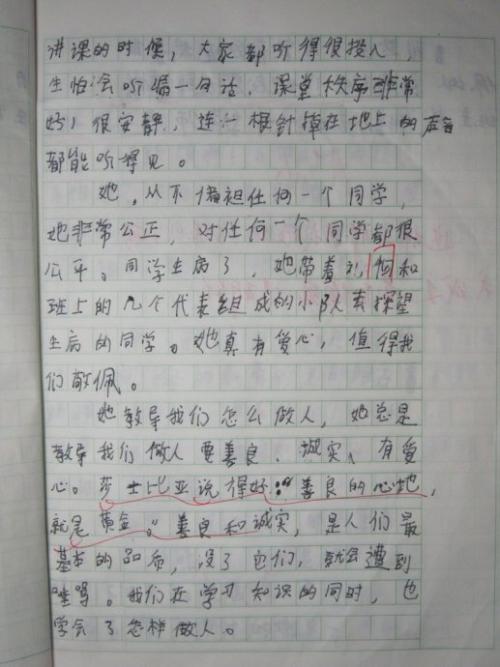 讲课的时候，大家都听得很投入，
生怕会听漏一句话，课堂秩序非常
好！很安静，连一根针掉在地上的声音
都能听得见。
她，从不偏袒任何一个同学，
她非常公正，对任何一个同学都很
公平。同学生病了，她带着礼何和
班上的几个代表组成的小队去探望
生病的同学。她真有爱心，值得我
们敬佩。
她教导我们怎么做人，她总是
教导我们做人要善良、诚实、有爱
心。莎士比亚说得好：“善良的心地，
就是黄金。”善良和诚实，是人们最
基本的品质，没了它们，就会遭到
唾骂。我们在学习知识的同时，也
学会了怎样做人。